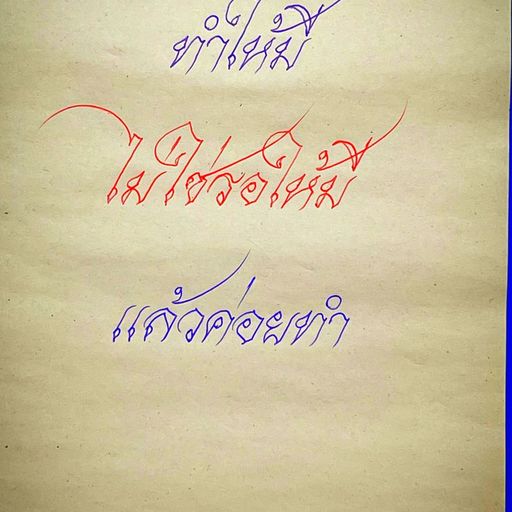 ทำให้มี
ไม่ใช่รอให้มี
แล้วค่อยทำ